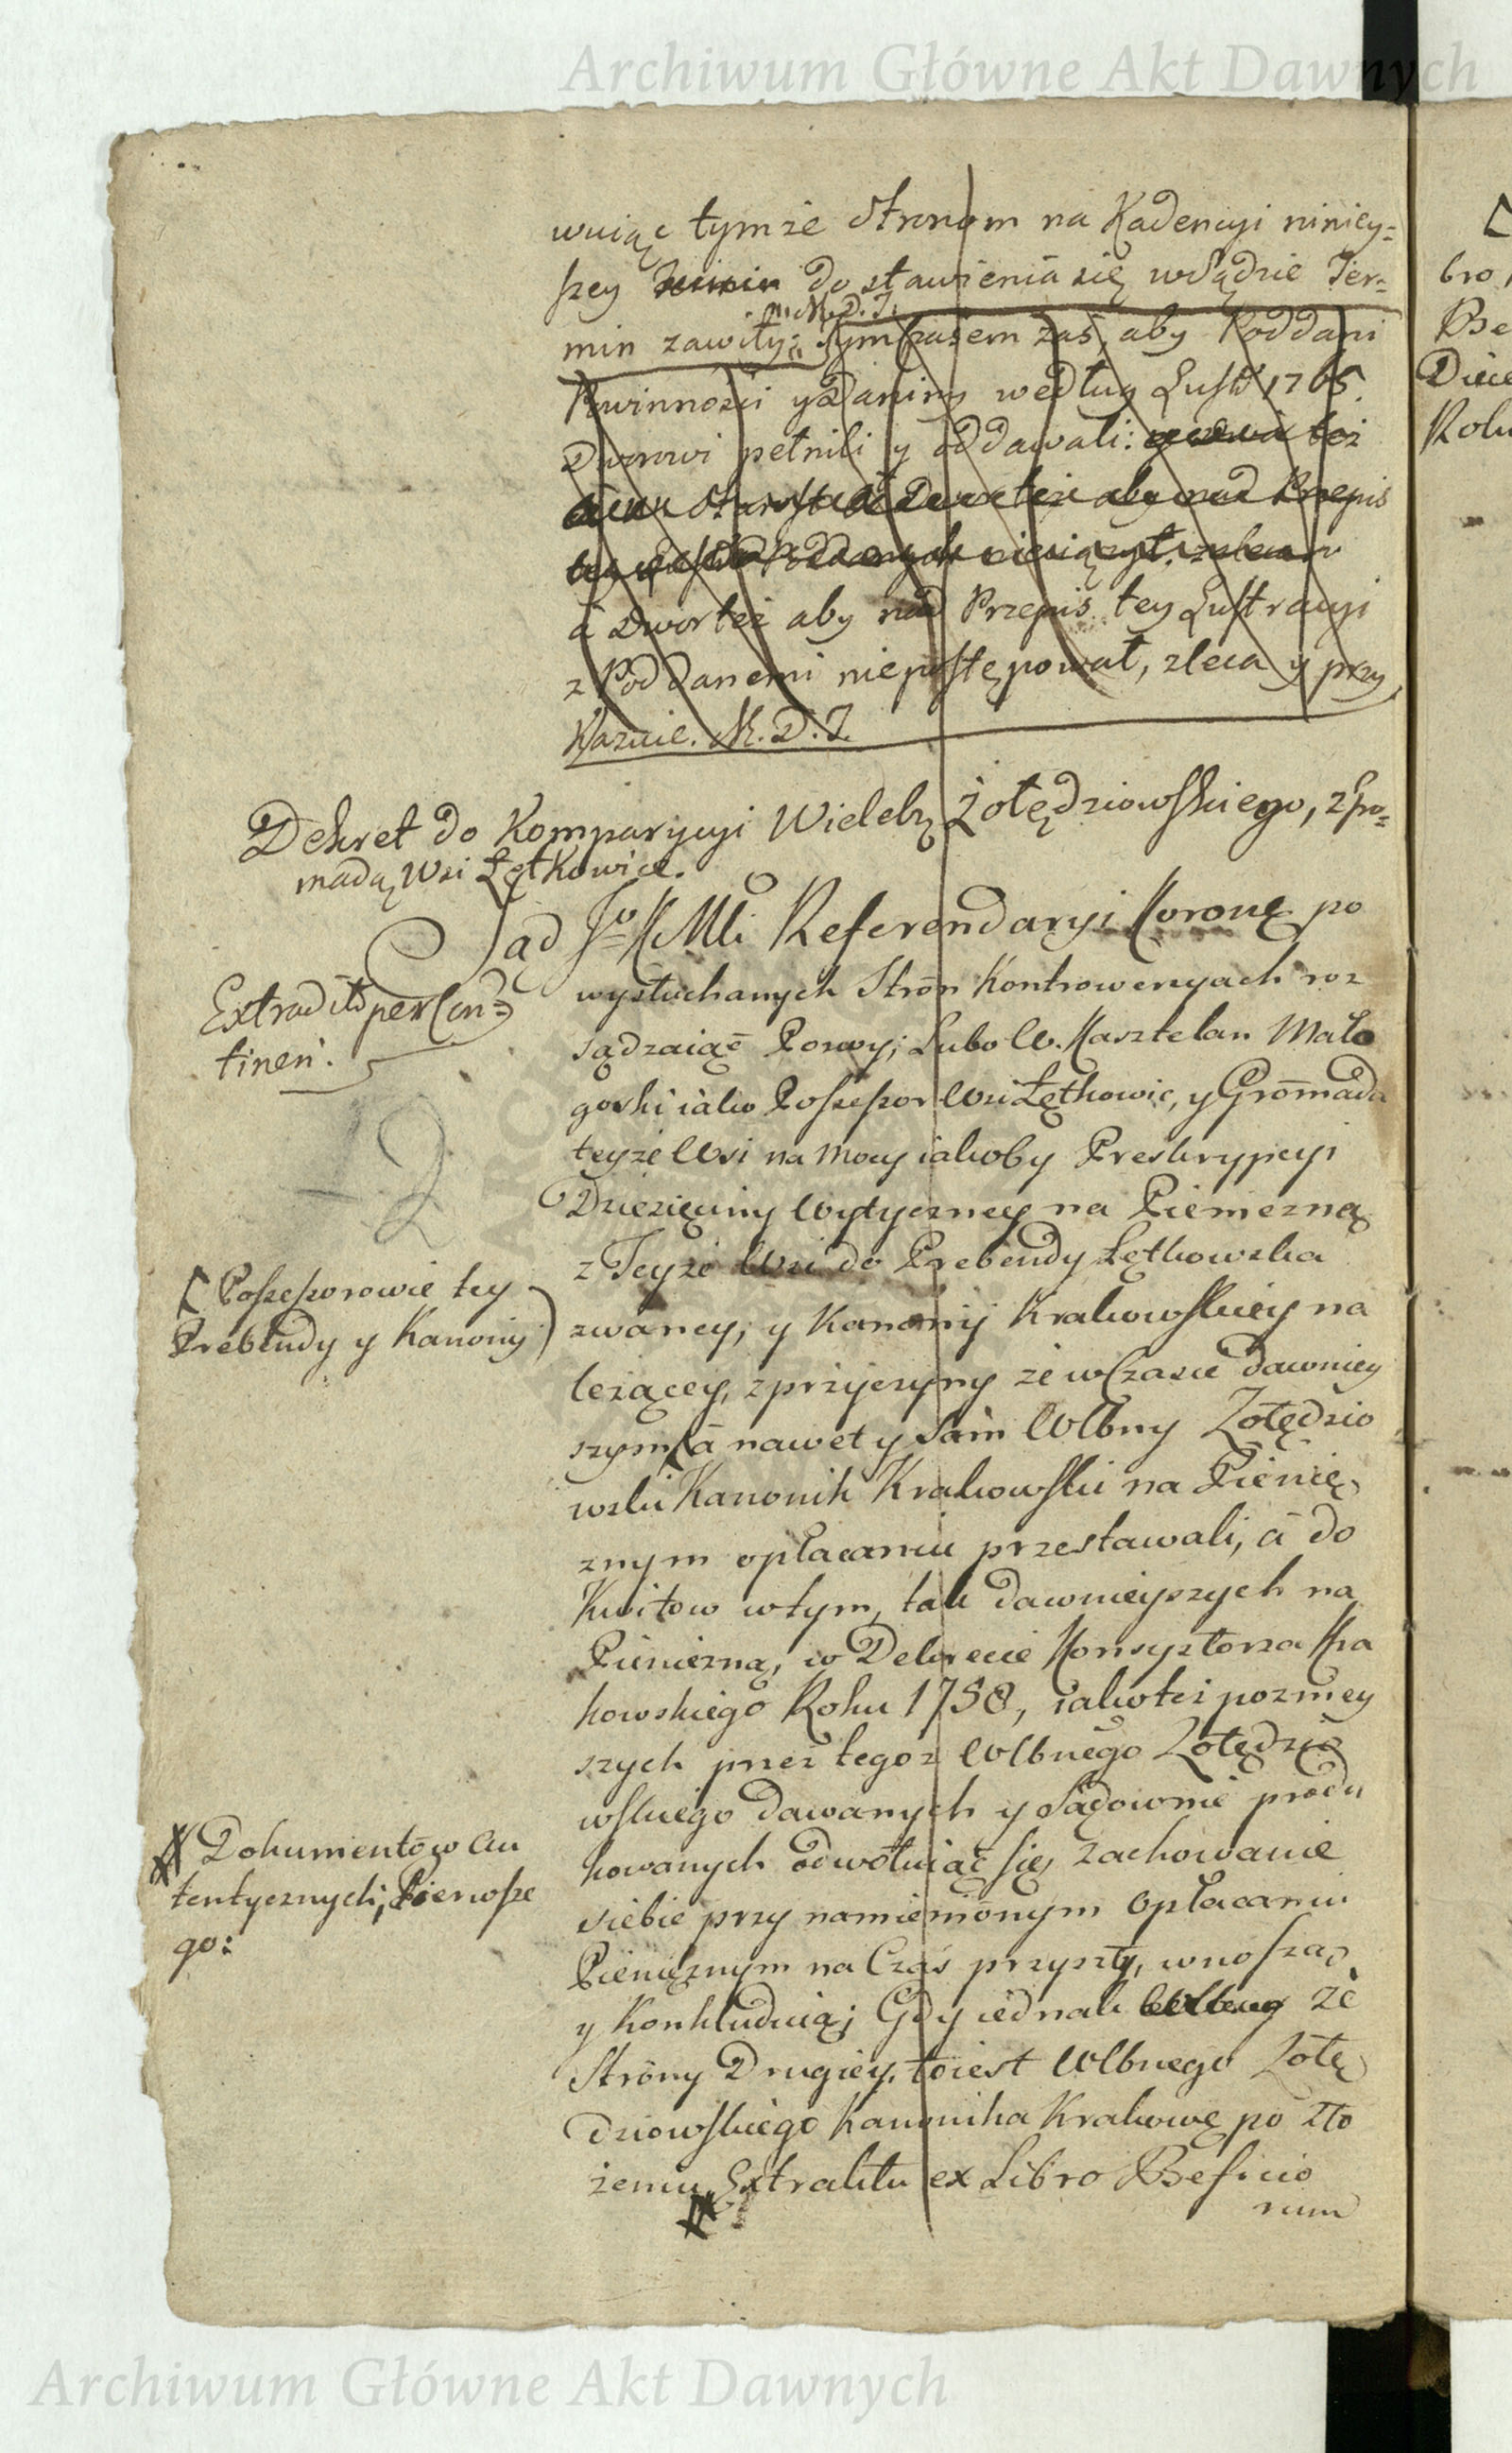 Archiwum Główne Akt Dawnych
wuiąc tymże Stronom na Kadencyi niniey=
szey do stawienia się w Sądzie Ter=
min zawity: M. D. J. tym czasem zaś, aby Poddani
Powinności y Daniny według Lustr 1765.
Dworowi pełnili y oddawali: też
Starost Dwor też aby nad Przepis
tey Poddanych
à Dwor też aby nad Przepis tey Lustracyi
z Poddanemi niepostępował, zleca y przy
Kazuie. M. D. J.
Dekret do Komparycyi Wielebę Żołędziowskiego, z Gro=
madą Wsi Łętkowice.
Sąd J° K Mci Referendaryi Koronę po
Extradit per Con=
tinen:
wysłuchanych Strōn Kontrowersyach roz
sądzaiąc Pozwy; Lubo W. Kasztelan Mało
goski iako Possessor Wsi Łętkowic, y Grōmada
teyże Wsi na mocy iakoby Preskrypcyi
Dziesięciny Wytyczney na Pieniezną
z Teyże Wsi do Prebendy Łętkowska
[ Possessorowie tey
Prebendy y Kanonij )
zwaney, y Kanonij Krakowskiey na
leżącey, z przyczyny że w Czasie dawniey
szym à nawet y Sam Wlbny Żołędzio
wski Kanonik Krakowski na Pienię
znym opłacaniu przestawali, à do
Kwitow w tym, tak dawnieyszych na
Pienieżną, w Dekrecie Konsystorza Kra
kowskiego Roku 1758, iakoteż pozniey
szych przez tegoż Wlbnego Żołędzio
wskiego dawanych y Sądownie produ
Dokumentōw Au
tentycznych, Pierwsze
go:
kowanych odwołuiąc się, zachowanie
siebie przy namienionym opłacaniu
Pienięznym na Czas przyszły, wnoszą
y Konkluduią; Gdy iednak że
Strōny Drugiey, to iest Wlbnego Żołę
dziowskiego Kanonika Krakowę po zło
żeniu Extraktu ex Libro Beficio
rum
bro
Be
Diece
Roku
Archiwum Główne Akt Dawnych